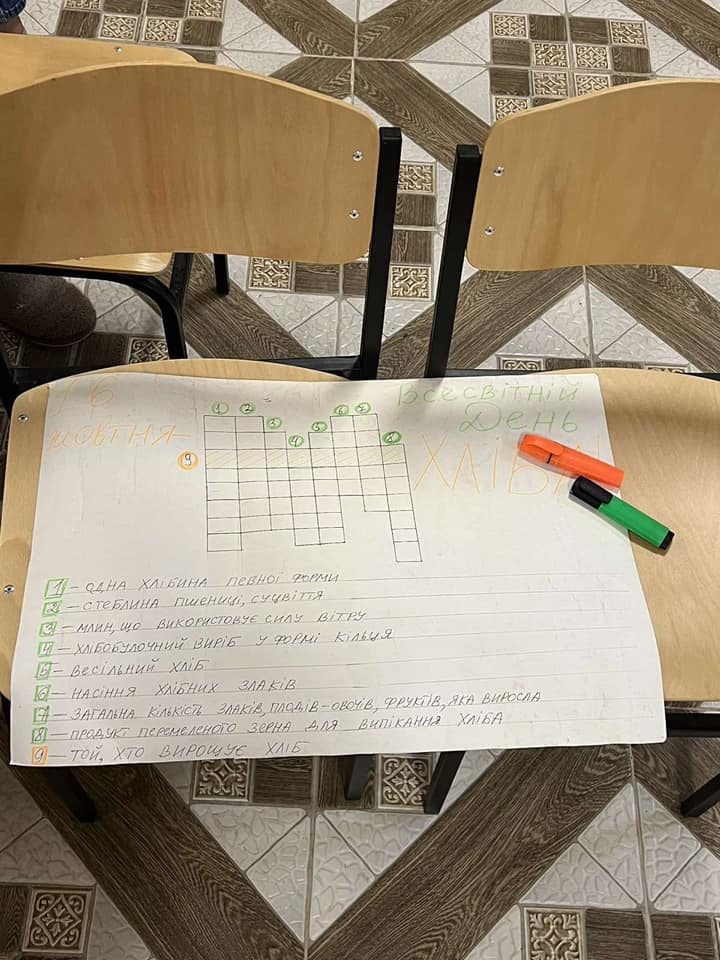 16 Всесвітній
жовтня День
ХЛІБА
1 2 3 4 5 6 7 8
9
1 – ОДНА ХЛІБИНА ПЕВНОЇ ФОРМИ
2 – СТЕБЛИНА ПШЕНИЦІ, СУЦВІТТЯ
3 – МЛИН, ЩО ВИКОРИСТОВУЄ СИЛУ ВІТРУ
4 – ХЛІБОБУЛОЧНИЙ ВИРІБ У ФОРМІ КІЛЬЦЯ
5 – ВЕСІЛЬНИЙ ХЛІБ
6 – НАСІННЯ ХЛІБНИХ ЗЛАКІВ
7 – ЗАГАЛЬНА КІЛЬКІСТЬ ЗЛАКІВ, ПЛОДІВ-ОВОЧІВ, ФРУКТІВ, ЯКА ВИРОСЛА
8 – ПРОДУКТ ПЕРЕМЕЛЕНОГО ЗЕРНА ДЛЯ ВИПІКАННЯ ХЛІБА
9 – ТОЙ, ХТО ВИРОЩУЄ ХЛІБ